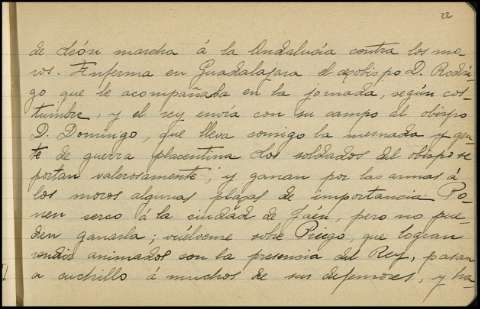 22
de León marcha á la Andalucía contra los mo-
ros. Enferma en Guadalajara el arzobispo D. Rodri-
go que le acompañaba en la jornada, según cos-
tumbre, y el rey envía con su campo al obispo
D. Domingo, que lleva consigo la mesnada y gen-
te de guerra placentina. Los soldados del obispo se
portan valerosamente; y ganan por las armas á
los moros algunas plazas de importancia. Po-
nen cerco á la ciudad de Jaén, pero no pue-
den ganarla; vuélvense sobre Priego, que logran
rendir animados con la presencia del Rey, pasan
a cuchillo á muchos de sus defensores, y ha-